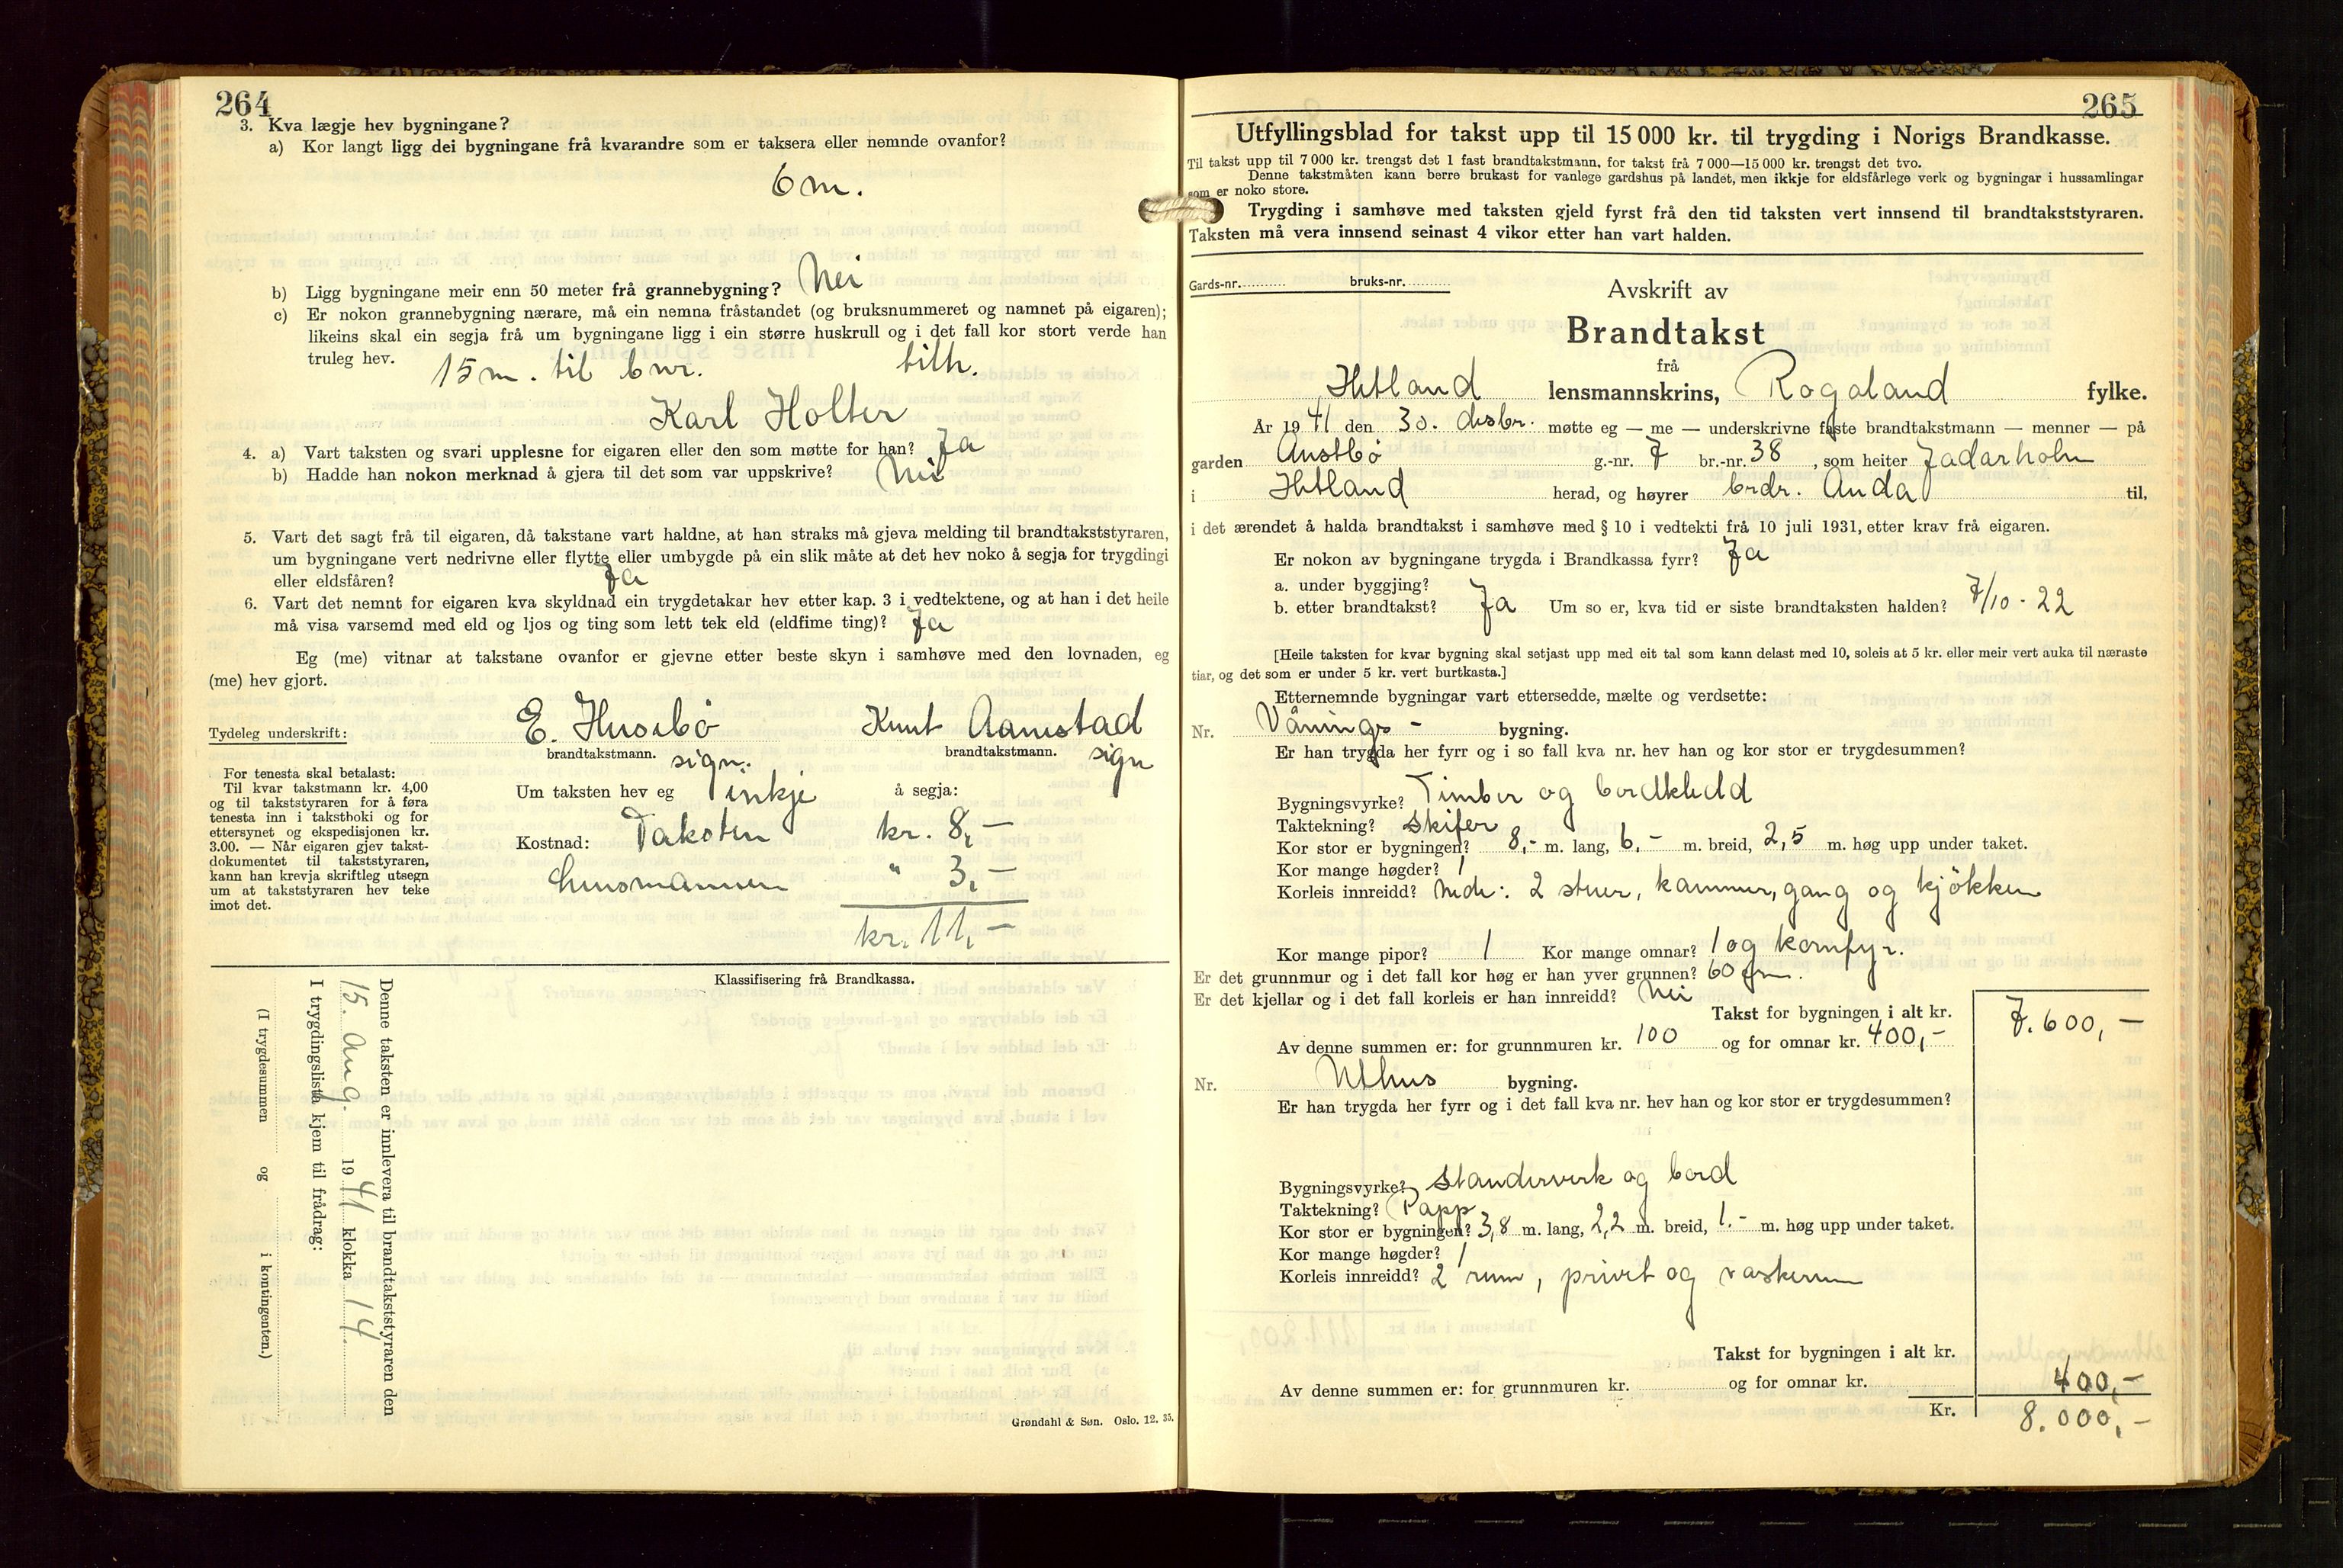 264
3. Kva lægje hev bygningane?
a) Kor langt ligg dei bygningane frå kvarandre som er taksera eller nemnde ovanfor?
6 m.
b) Ligg bygningane meir enn 50 meter frå grannebygning? Nei
c) Er nokon grannebygning nærare, må ein nemna fråstandet (og bruksnummeret og namnet på eigaren);
likeins skal ein segja frå um bygningane ligg i ein større huskrull og i det fall kor stort verde han
truleg hev. 15 m. til bnr. tilh.
Karl Holter
4. a) Vart taksten og svari upplesne for eigaren eller den som møtte for han? Ja
b) Hadde han nokon merknad å gjera til det som var uppskrive? Nei
5. Vart det sagt frå til eigaren, då takstane vart haldne, at han straks må gjeva melding til brandtakststyraren,
um bygningane vert nedrivne eller flytte eller umbygde på ein slik måte at det hev noko å segja for trygdingi
eller eldsfåren? Ja
6. Vart det nemnt for eigaren kva skyldnad ein trygdetakar hev etter kap. 3 i vedtektene, og at han i det heile
må visa varsemd med eld og ljos og ting som lett tek eld (eldfime ting)? Ja
Eg (me) vitnar at takstane ovanfor er gjevne etter beste skyn i samhøve med den lovnaden, eg
(me) hev gjort.
Tydeleg underskrift: E. Husebø Knut Aamstad
brandtakstmann. sign. brandtakstmann. sign
For tenesta skal betalast:
Til kvar takstmann kr. 4,00
og til takststyraren for å føra
tenesta inn i takstboki og for
ettersynet og ekspedisjonen kr.
3.00. — Når eigaren gjev takst-
dokumentet til takststyraren,
kann han krevja skriftleg utsegn
um at takststyraren hev teke
imot det.
Um taksten hev eg inkje å segja:
Kostnad: Taksten kr. 8,—
lensmannen " 3,—
kr. 11,—
Klassifisering frå Brandkassa.
Denne taksten er innlevera til brandtakststyraren den
15. aug. 1941 klokka 14
I trygdingslista kjem til frådrag:
(I trygdesummen og i kontingenten.)
Grøndahl & Søn. Oslo. 12. 35.
265
Utfyllingsblad for takst upp til 15 000 kr. til trygding i Norigs Brandkasse.
Til takst upp til 7 000 kr. trengst det 1 fast brandtakstmann, for takst frå 7 000—15 000 kr. trengst det tvo.
Denne takstmåten kann berre brukast for vanlege gardshus på landet, men ikkje for eldsfårlege verk og bygningar i hussamlingar
som er noko store.
Trygding i samhøve med taksten gjeld fyrst frå den tid taksten vert innsend til brandtakststyraren.
Taksten må vera innsend seinast 4 vikor etter han vart halden.
Gards-nr. bruks-nr.
Avskrift av
Brandtakst
frå
Hetland lensmannskrins, Rogaland fylke.
År 1941 den 30. desbr. møtte eg — me — underskrivne faste brandtakstmann — menner — på
garden Austbø g.-nr. 7 br.-nr. 38, som heiter Jadarholm
i Hetland herad, og høyrer brdr. Anda til,
i det ærendet å halda brandtakst i samhøve med § 10 i vedtekti frå 10 juli 1931, etter krav frå eigaren.
Er nokon av bygningane trygda i Brandkassa fyrr? Ja
a. under byggjing?
b. etter brandtakst? Ja Um so er, kva tid er siste brandtaksten halden? 7/10 - 22
[Heile taksten for kvar bygning skal setjast upp med eit tal som kann delast med 10, soleis at 5 kr. eller meir vert auka til næraste
tiar, og det som er under 5 kr. vert burtkasta.]
Etternemnde bygningar vart ettersedde, mælte og verdsette:
Nr. Vånings- bygning.
Er han trygda her fyrr og i so fall kva nr. hev han og kor stor er trygdesummen?
Bygningsvyrke? Timber og bordkledd
Taktekning? skifer
Kor stor er bygningen? 8,- m. lang, 6,- m. breid, 2,5 m. høg upp under taket.
Kor mange høgder? 1
Korleis innreidd? Nede: 2 stuer, kammer, gang og kjøkken
Kor mange pipor? 1 Kor mange omnar? 1 og komfyr.
Er det grunnmur og i det fall kor høg er han yver grunnen? 60 cm.
Er det kjellar og i det fall korleis er han innreidd? Nei
Takst for bygningen i alt kr. 7.600,—
Av denne summen er: for grunnmuren kr. 100 og for omnar kr. 400,-
Nr. Uthus bygning.
Er han trygda her fyrr og i det fall kva nr. hev han og kor stor er trygdesummen?
Bygningsvyrke? standerverk og bord
Taktekning? Papp
Kor stor er bygningen? 3,8 m. lang, 2,2 m. breid, 1.- m. høg upp under taket.
Kor mange høgder? 1
Korleis innreidd? 2 rum, privet og vaskerum
Takst for bygningen i alt kr. 400,—
Av denne summen er: for grunnmuren kr. og for omnar kr.
Kr. 8.000,—